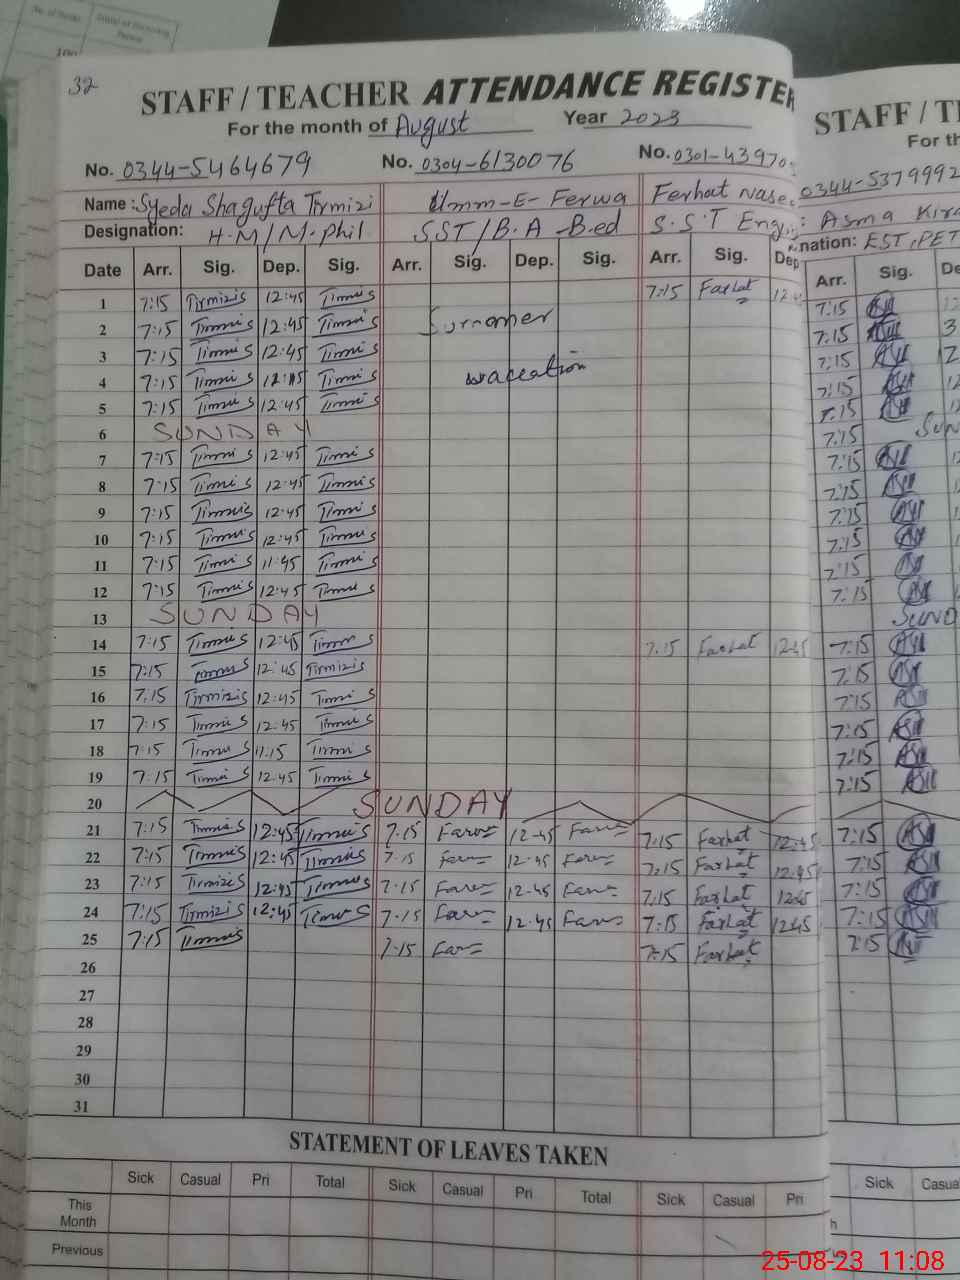 No. of
100
32
STAFF / TEACHER ATTENDANCE REGISTER
For the month of August Year 2023
No. 0344-5464679 No. 0304-6130076 No. 0301-43970
Name : Syeda Shagufta Tirmizi Umm-E-Ferwa Ferhat Nase
Designation: H.M/M.Phil SST/B.A-B.ed S.S.T Eng
Date Arr. Sig. Dep. Sig. Arr. Sig. Dep. Sig. Arr. Sig. Dep
1 7:15 Tirmizis 12:45 Tirmis 7:15 Farhat 12:4
2 7:15 Tirmis 12:45 Tirmis Summer
3 7:15 Tirmis 12:45 Tirmis
4 7:15 Tirmis 12:45 Tirmis vaceation
5 7:15 Tirmis 12:45 Tirmis
6 SUNDAY
7 7:15 Tirmis 12:45 Tirmis
8 7:15 Tirmis 12:45 Tirmis
9 7:15 Tirmis 12:45 Tirmis
10 7:15 Tirmis 12:45 Tirmis
11 7:15 Tirmis 11:45 Tirmis
12 7:15 Tirmis 12:45 Tirmis
13 SUNDAY
14 7:15 Tirmis 12:45 Tirmis 7:15 Farhat 12:45
15 7:15 Tirmis 12:45 Tirmizis
16 7:15 Tirmizis 12:45 Tirmis
17 7:15 Tirmis 12:45 Tirmis
18 7:15 Tirmis 11:15 Tirmis
19 7:15 Tirmis 12:45 Tirmis
20 SUNDAY
21 7:15 Tirmis 12:45 Tirmis 7:15 Farw 12:45 Farw 7:15 Farhat 12:45
22 7:15 Tirmis 12:45 Tirmis 7:15 Farw 12:45 Farw 7:15 Farhat 12:45
23 7:15 Tirmizis 12:45 Tirmis 7:15 Farw 12:45 Farw 7:15 Farhat 12:45
24 7:15 Tirmizis 12:45 Tirmis 7:15 Farw 12:45 Farw 7:15 Farhat 12:45
25 7:15 Tirmis 7:15 Farw 7:15 Farhat
26
27
28
29
30
31
STATEMENT OF LEAVES TAKEN
Sick Casual Pri Total Sick Casual Pri Total Sick Casual Pri
This Month
Previous
STAFF / TE
For th
0344-5379992
: Asma Kira
nation: EST, PET
Arr. Sig. De
7:15
7:15
7:15
7:15
7:15
7:15 SUN
7:15
7:15
7:15
7:15
7:15
7:15
SUND
7:15
7:15
7:15
7:15
7:15
7:15
7:15
7:15
7:15
7:15
7:15
Sick Casua
25-08-23 11:08